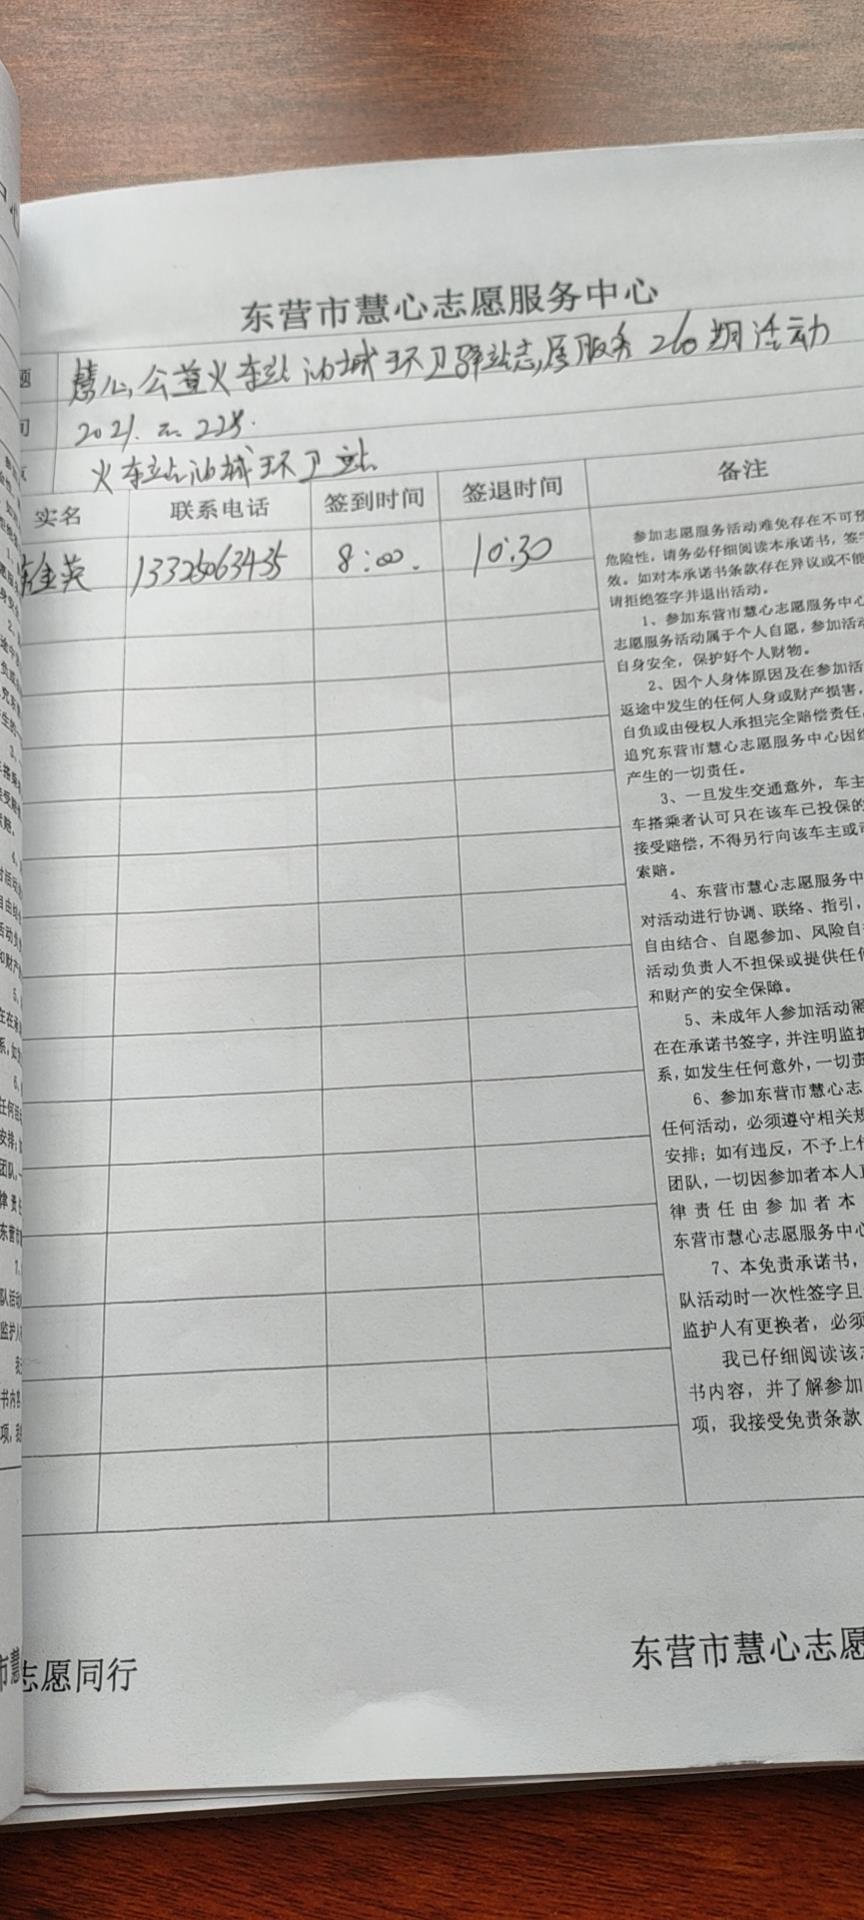 东营市慧心志愿服务中心
题 慧心公益火车站油城环卫驿站志愿服务260期活动
间 2021.
火车站油城环卫站
实名 联系电话 签到时间 签退时间 备注
金英 13325063435 8:00. 10:30
参加志愿服务活动难免存在不可预
危险性，请务必仔细阅读本承诺书，签字
效。如对本承诺书条款存在异议或不能
请拒绝签字并退出活动。
1、参加东营市慧心志愿服务中心
志愿服务活动属于个人自愿，参加活动
自身安全，保护好个人财物。
2、因个人身体原因及在参加活
返途中发生的任何人身或财产损害，
自负或由侵权人承担完全赔偿责任，
追究东营市慧心志愿服务中心因组
产生的一切责任。
3、一旦发生交通意外，车主
车搭乘者认可只在该车已投保的
接受赔偿，不得另行向该车主或司
索赔。
4、东营市慧心志愿服务中
对活动进行协调、联络、指引，
自由结合、自愿参加、风险自
活动负责人不担保或提供任何
和财产的安全保障。
5、未成年人参加活动需
在在承诺书签字，并注明监护
系，如发生任何意外，一切责
6、参加东营市慧心志
任何活动，必须遵守相关规
安排；如有违反，不予上传
团队，一切因参加者本人
律责任由参加者本
东营市慧心志愿服务中心
7、本免责承诺书，
队活动时一次性签字且
监护人有更换者，必须
我已仔细阅读该志
书内容，并了解参加
项，我接受免责条款
志愿同行 东营市慧心志愿